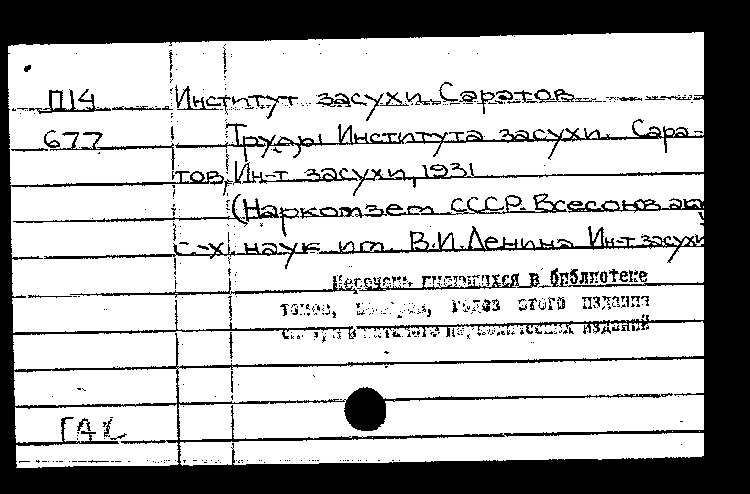 П14 Институт засухи. Саратов
677 Труды Института засухи. Сара-
тов, Ин-т засухи, 1931
(Наркомзем СССР. Всесоюз. ак
с.-х. наук им. В.И. Ленина Ин-т засухи
Перечень имеющихся в библиотеке
томов, номеров, годов этого издания
смотри в каталоге периодических изданий
ГАХ